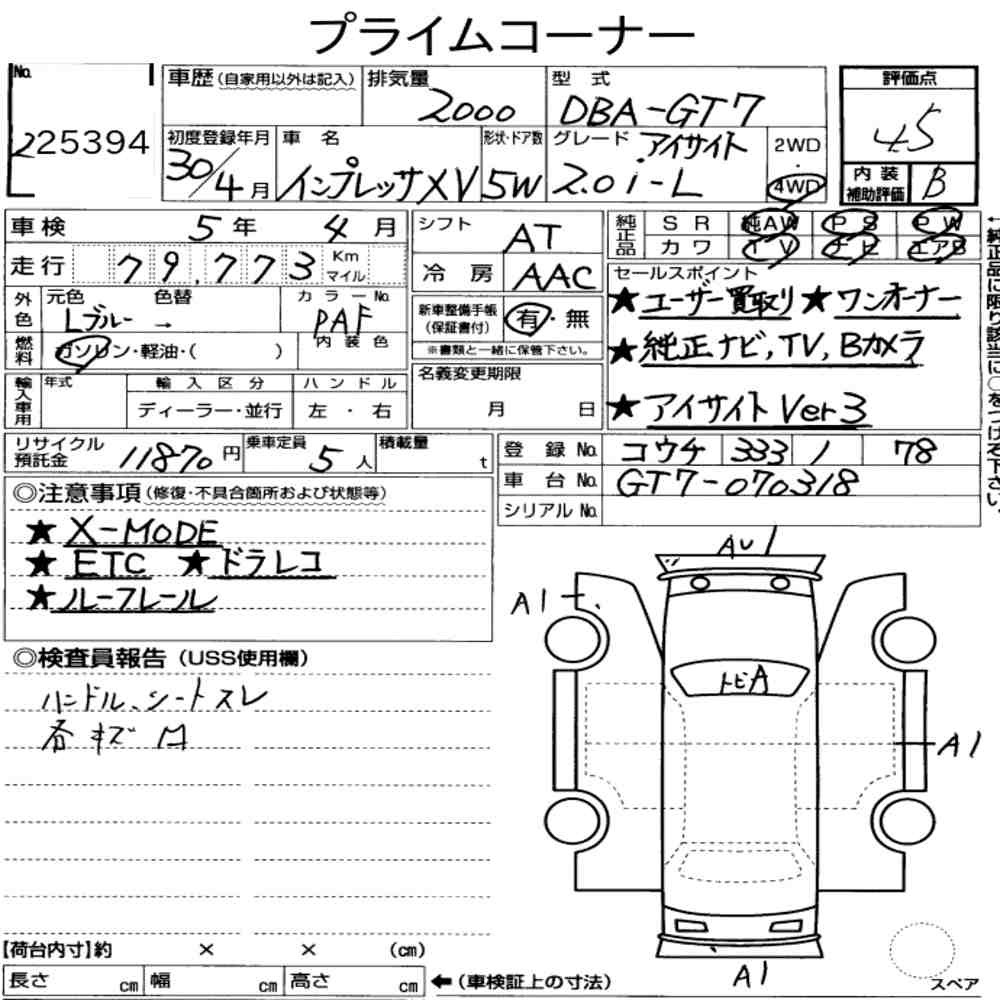 プライムコーナー
No.
225394
車歴(自家用以外は記入)
排気量
2000
型式
DBA-GT7
評価点
45
初度登録年月
30/4月
車名
インプレッサXV
形状・ドア数
5W
グレード
アイサイト
2.0i-L
2WD
・
4WD
内装
補助評価
B
車検 5年 4月
走行 79,773 Km
マイル
シフト
AT
冷房 AAC
純正品
SR 純AW PS PW
カワ TV ナビ エアB
←純正品に限り該当に○をつけて下さい。
外色
元色 色替
Lブルー →
カラーNo.
PAF
内装色
燃料
ガソリン・軽油・( )
新車整備手帳
(保証書付)
有・無
※書類と一緒に保管下さい。
セールスポイント
★ユーザー買取り ★ワンオーナー
★純正ナビ,TV,Bカメラ
★アイサイトVer3
輸入車用
年式
輸入区分
ディーラー・並行
ハンドル
左・右
名義変更期限
月 日
リサイクル
預託金
11870円
乗車定員
5人
積載量
t
登録No. コウチ 333 1 78
車台No. GT7-070318
シリアルNo.
◎注意事項(修復・不具合箇所および状態等)
★X-MODE
★ETC ★ドラレコ
★ルーフレール
◎検査員報告(USS使用欄)
ハンドル、シートスレ
各キズ凹
AU1
A1
トビA
A1
A1
スペア
【荷台内寸】約 × × (cm)
長さ cm 幅 cm 高さ cm
←(車検証上の寸法)